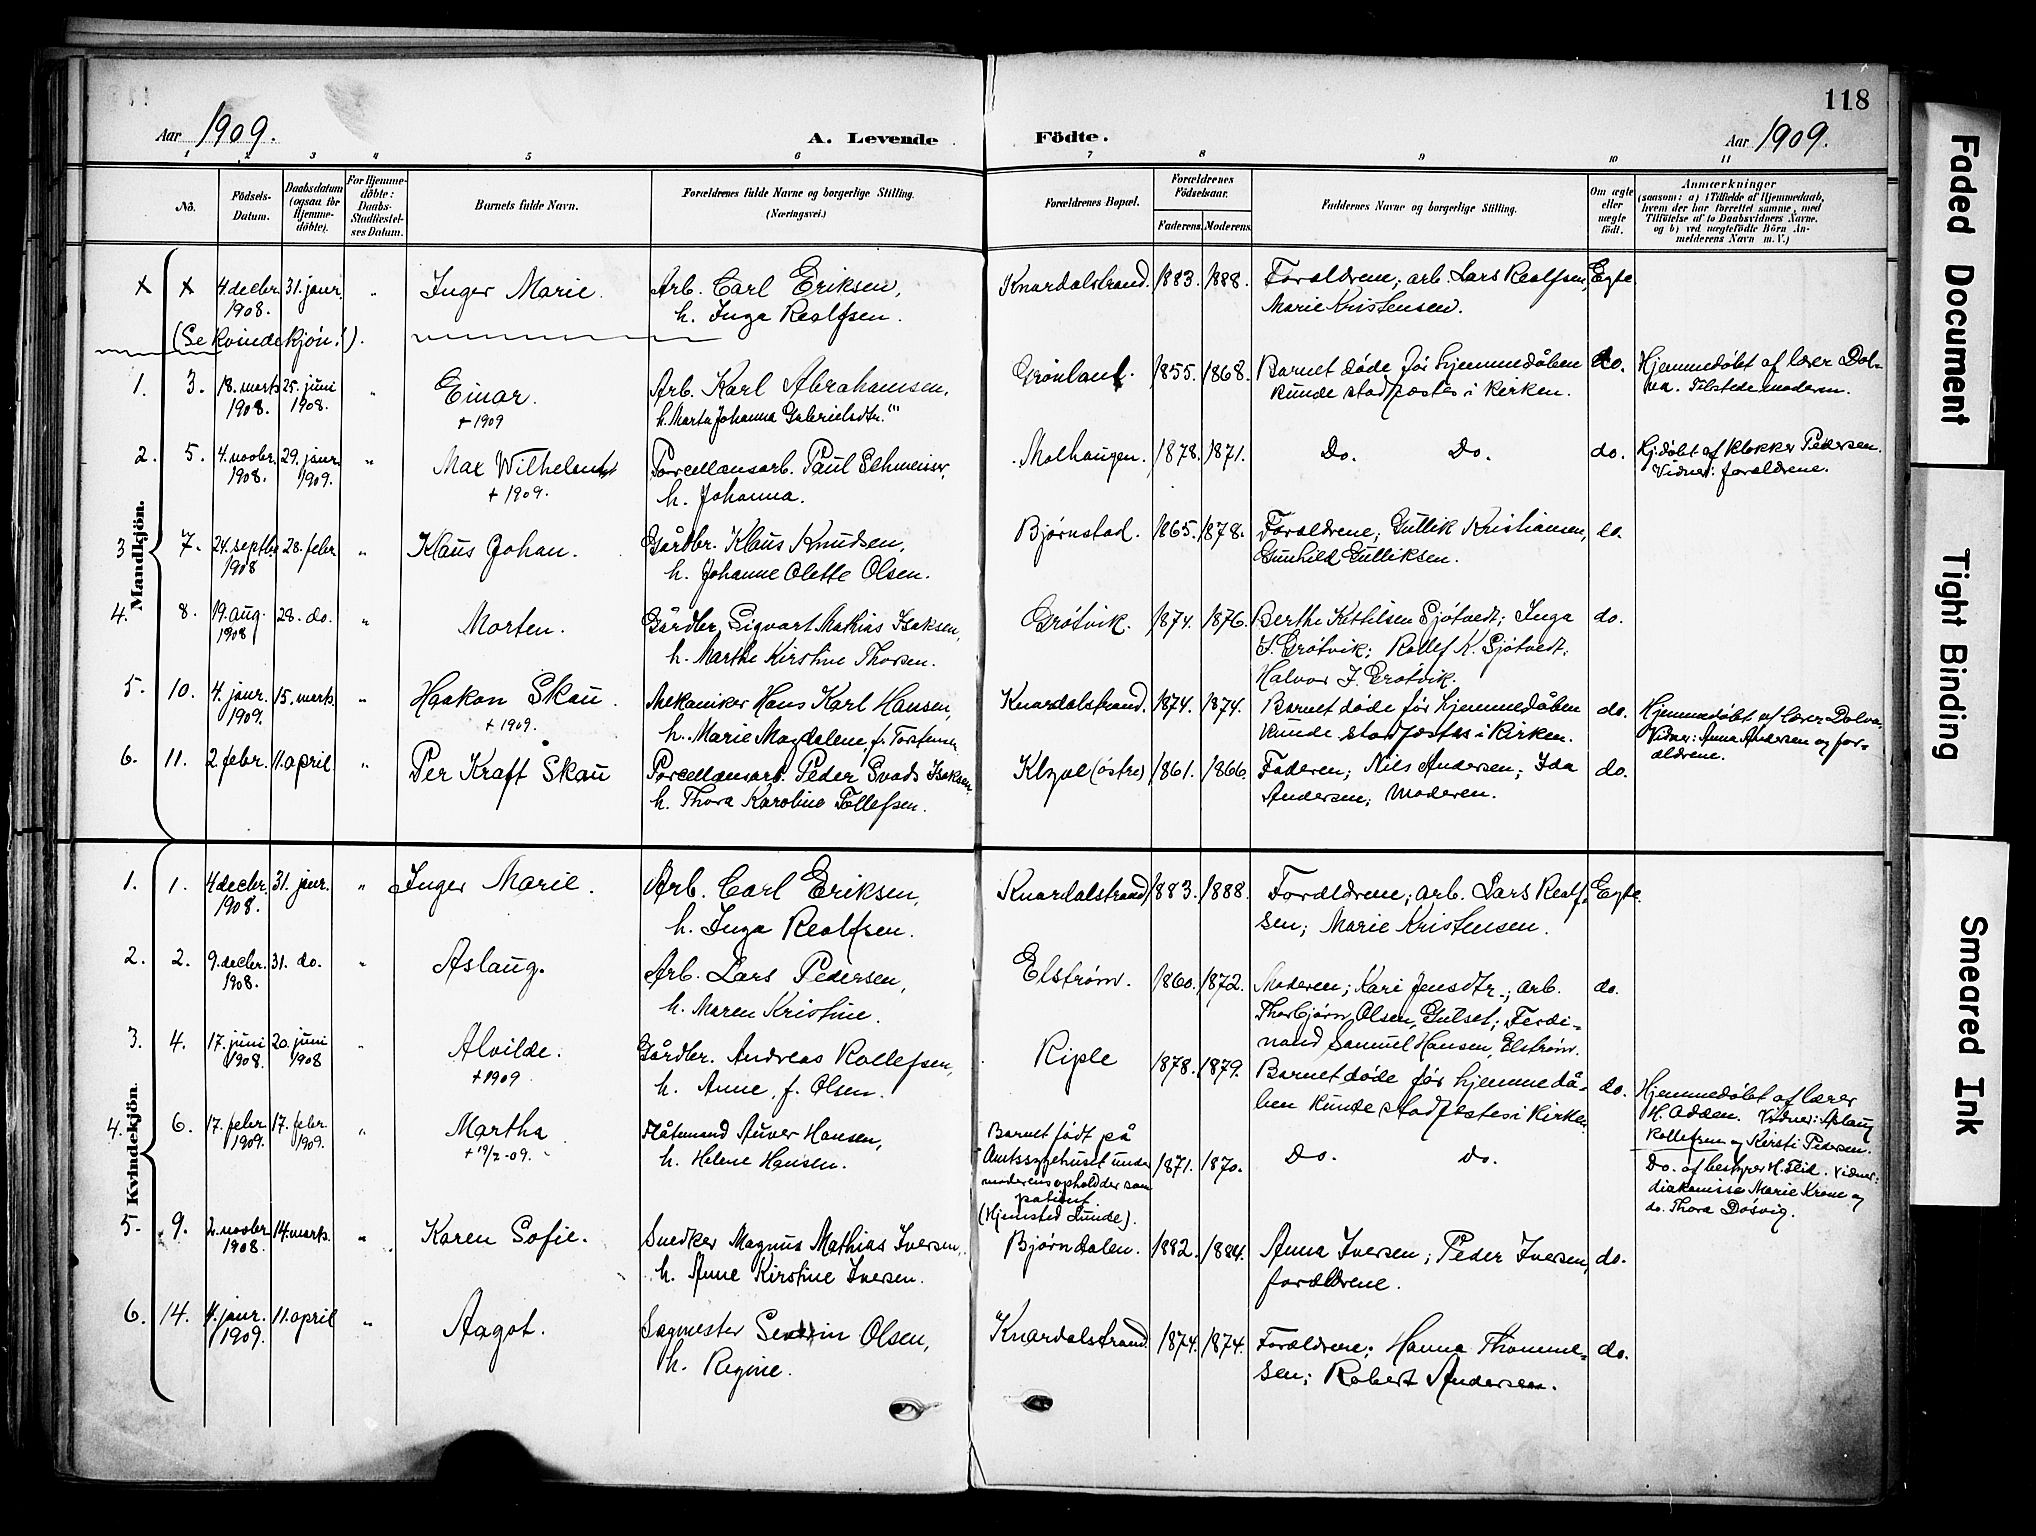 118
Aar 1909.
A. Levende Födte.
Aar 1909.
1 2 3 4 5 6 7 8 9 10 11
No. Födsels-Datum. Daabsdatum (ogsaa for Hjemme-döbte). For Hjemme-döbte: Daabs-Stadfæstel-ses Datum. Barnets fulde Navn. Forældrenes fulde Navne og borgerlige Stilling. (Næringsvei.) Forældrenes Bopæl. Forældrenes Födselsaar. Faderens. Moderens. Faddernes Navne og borgerlige Stilling. Om ægte eller uægte födt. Anmærkninger
(saasom: a) i Tilfælde af Hjemmedaab, hvem der har forrettet samme, med Tilföielse af to Daabsvidners Navne, og b) ved uægtefödte Börn Anmelderens Navn m. V.)
Mandkjön.
x x 4. decbr. 31. janr. " Inger Marie. Arb. Carl Eriksen, Knardalstrand. 1883. 1888. Forældrene; arb. Lars Realfsen, Egte
1908. h. Inga Realfsen. Marie Kristensen.
(Se kvindekjøn!).
1. 3. 18. marts 25. juni " Einar. Arb. Karl Abrahamsen, Grønland. 1855. 1868. Barnet døde før hjemmedåben do. Hjemmedøbt af lærer Dol-
1908. 1908. + 1909 h. Marta Johanna Gabrielsdtr. kunde stadfæstes i kirken. va. Tilstede moderen.
2. 5. 4. novbr. 29. janr. " Max Wilhelm Porcellansarb. Paul Schmeisser, Molhaugen. 1878. 1871. Do. Do. do. Hj.døbt af klokker Pedersen.
1908. 1909. + 1909. h. Johanna. Vidner: forældrene.
3 7. 24. septbr 28. febr " Klaus Johan. Gårdbr. Klaus Knudsen, Bjørnstad. 1865. 1878. Forældrene; Gullik Kristiansen, do.
1908 h. Johanne Olette Olsen. Gunhild Gulliksen.
4. 8. 19. aug. 28. do. " Morten. Gårdbr. Sigvart Mathias Isaksen, Grøtvik. 1874. 1876. Berthe Kittilsen Sjøtvedt; Inga do.
1908 h. Marthe Kirstine Thorsen. S. Grøtvik; Rollef K. Sjøtvedt;
Halvor J. Grøtvik.
5. 10. 4. janr. 15. marts. " Haakon Skau. Mekaniker Hans Karl Hansen, Knardalstrand. 1874. 1874. Barnet døde før hjemmedåben do. Hjemmedøbt af lærer Dolva.
1909. + 1909. h. Marie Magdalene, f. Torstensen kunde stadfæstes i kirken. Vidner: Anna Andersen og for-
ældrene.
6. 11. 2. febr. 11. april " Per Kraft Skau Porcellansarb. Peder Svads Isaksen, Klyve (østre) 1861. 1866. Faderen; Nils Andersen; Ida do.
h. Thora Karoline Tollefsen. Andersen; Moderen.
Kvindekjön.
1. 1. 4 decbr. 31. janr. " Inger Marie. Arb. Carl Eriksen, Knardalstrand 1883. 1888. Forældrene; arb. Lars Realf- Egte.
1908. h. Inga Realfsen. sen; Marie Kristensen.
2. 2. 9. decbr. 31. do. " Aslaug. Arb. Lars Pedersen, Elstrøm. 1860. 1872. Moderen; Kari Jensdtr.; arb. do.
1908. h. Maren Kristine. Thorbjørn Olsen, Gulset; Ferdi-
nand Samuel Hansen, Elstrøm.
3. 4. 17. juni 20. juni " Alvilde. Gårdbr. Andreas Rollefsen, Riple 1878. 1879. Barnet døde før hjemmedå- do. Hjemmedøbt af lærer
1908. 1908 + 1909 h. Anne, f. Olsen. ben kunde stadfæstes i kirken. H. Adden. Vidner: Aslaug
Rollefsen og Kirsti Pedersen.
4. 6. 17. febr. 17. febr. " Martha Flåtemand Auver Hansen, Barnet født på 1871. 1870. Do. do. Do. af bestyrer H. Flid. Vidner:
1909. 1909. + 19/2-09. h. Helene Hansen. Amtssygehuset under diakonisse Marie Krone og
moderens ophold der som do. Thora Døsvig.
patient
(Hjemsted Lunde).
5. 9. 2. novbr. 14. marts. " Karen Sofie. Snedker Magnus Mathias Iversen, Bjørndalen. 1882. 1884. Anna Iversen; Peder Iversen, do.
1908. h. Anne Kirstine Iversen. forældrene.
6. 14. 4. janr. 11. april " Aagot. Sagmester Severin Olsen, Knardalstrand. 1874. 1874. Forældrene; Hanna Thomme- do.
1909. h. Regine. sen; Robert Andersen.
Faded Document
Tight Binding
Smeared Ink